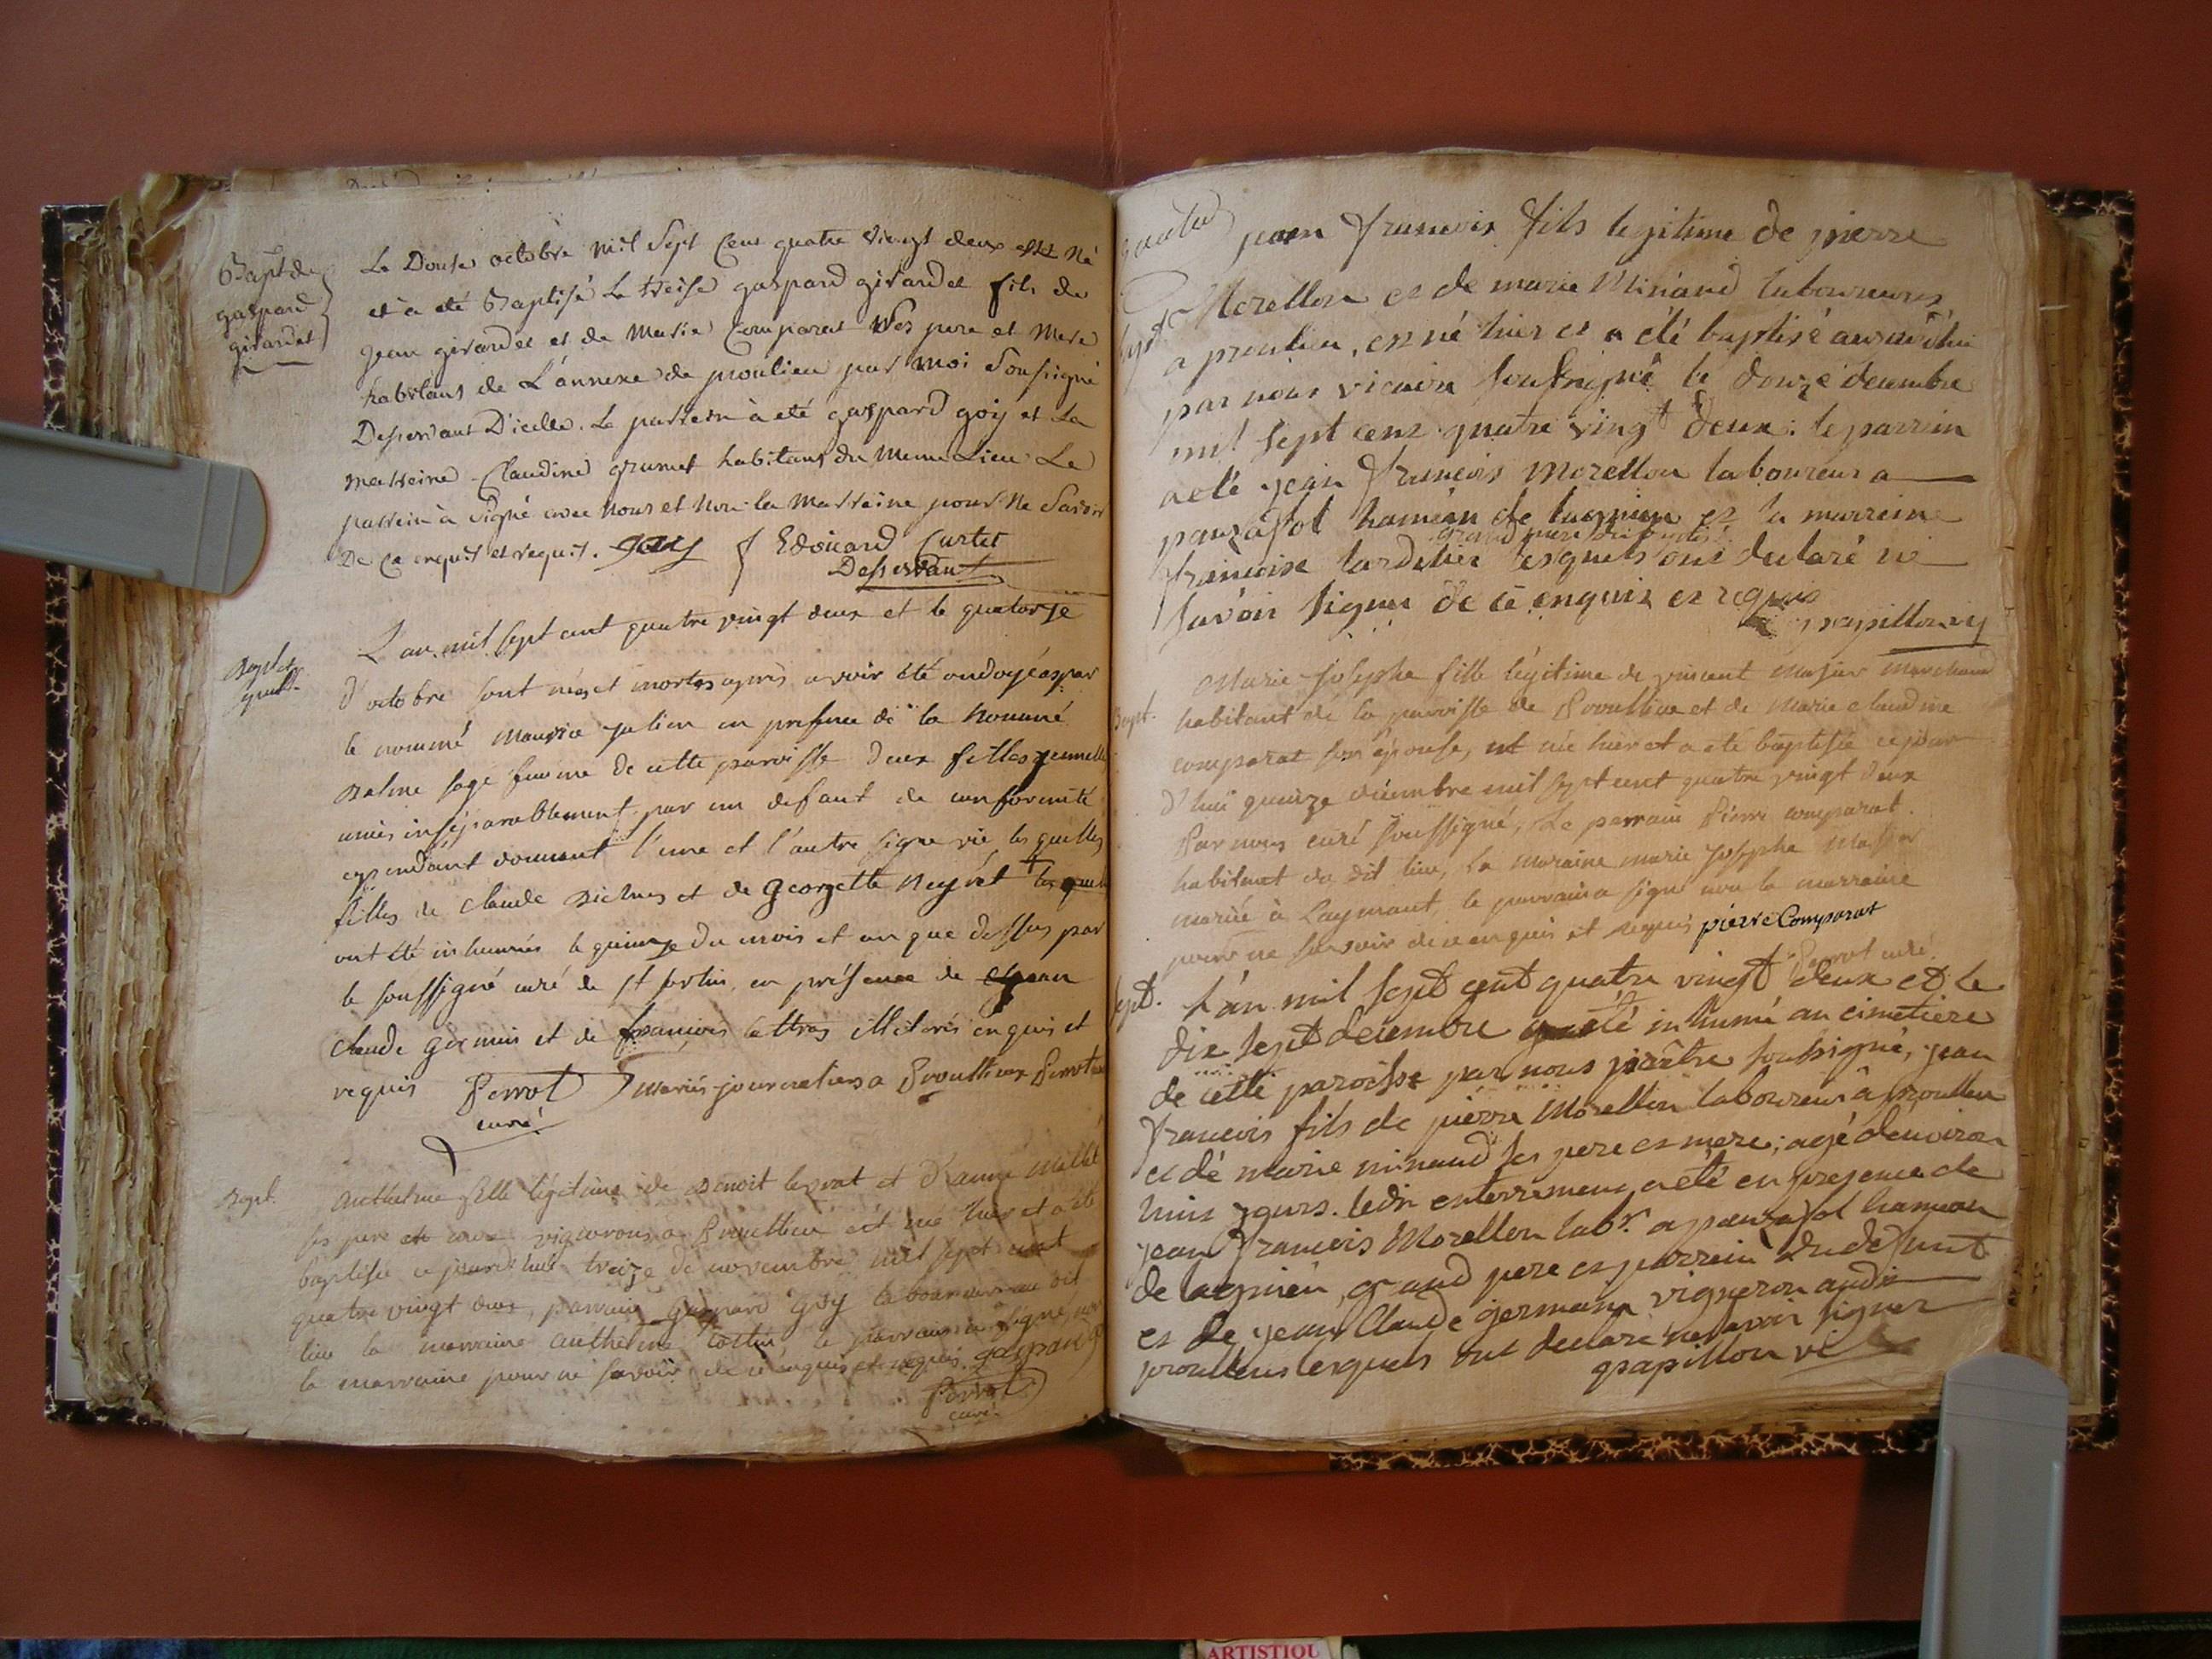 Bapt de
gaspard
girardet
Le Douse octobre mil Sept Cent quatre Vingt deux est Né
et à eté Baptisé Le treise gaspard girardet fils de
Jean girardet et de Marie Comparat Ses pere et Mere
habitans de L'annexe de proulieu par moi Soussigné
Desservant D'icelle. Le parrein à eté gaspard goiy et La
marreine Claudine grumet habitans du Meme Lieu Le
parrein à Signé avec Nous et Non la Marreine pour Ne Savoir
De Ce enquis et requis. goiy Edoüard Curtet
Desservant
L'an mil sept cent quatre vingt deux et le quatorze
d'octobre sont nées et mortes après avoir été ondoyées par
le nommé Maurice Julien en presence de la nommé
Balme sage femme de cette paroisse deux filles jumelles
unies inséparablement par un defaut de conformité
cependant donnant l'une et l'autre signe vie les quelles
filles de claude et de georgette Neyret + les quelles
ont été inhumées le quinze du mois et an que dessus par
le soussigné curé de st sorlin, en présence de
claude germain et de françois lettras illiterés enquis et
requis Perrot mariés journaliers a Proullieu Perrot
curé
Bapt.
Anthelme fille légitime de Benoit legrat et d'anne Millet
ses pere et mere vignerons a Proullieu est née hier et a été
baptisée ce jourd'hui treize de novembre mil sept cent
quatre vingt deux, parrain Gaspard goÿ laboureur au dit
lieu la marraine anthelme le parrain a signé, non
la marraine pour ne savoir de ce enquis et requis. gaspard
Perrot
curé
jean françois fils legitime de pierre
Morellon et de marie Minand laboureurs
a proulieu, est né hier et a été baptisé aujourd'hui
par nous vicaire soussigné le douze decembre
mil sept cent quatre vingt deux: le parrein
a eté jean françois Morellon laboureur a
pauzafol haméau de lagnieu et la marreine
grand pere du baptisé
françoise tardelier lesquels ont declaré ne
savoir signer de ce enquis et requis
papillon vic
Bapt.
Marie Josephe fille légitime de vincent Masson Marchand
habitant de la paroisse de Proullieu et de Marie claudine
comparat son épouse, est née hier et a été baptisée ce jour
d'hui quinze décembre mil sept cent quatre vingt deux
Par nous curé soussigné, Le parrain Pierre comparat
habitant du dit lieu, la maraine marie Josephe Masson
mariée à Laymant, le parrain a signé non la marraine
pour ne savoir de ce enquis et requis pierre Comparat
Perrot curé
sept. L'an mil sept cent quatre vingt deux et le
dix sept decembre a été inhumé au cimetiere
de cette paroisse par nous prêtre soussigné, jean
françois fils de pierre Morellon laboureur à proulieu
et de marie minand ses pere et mere; agé d'environ
huit jours. ledit enterrement a eté en presence de
jean françois Morellon labr. a pauzafol hameau
de lagnieu, grand pere et parrein du defunt
et de jean Claude germain vigneron audit
proulieu lesquels ont declaré ne savoir signer
papillon vic
ARTISTIQU